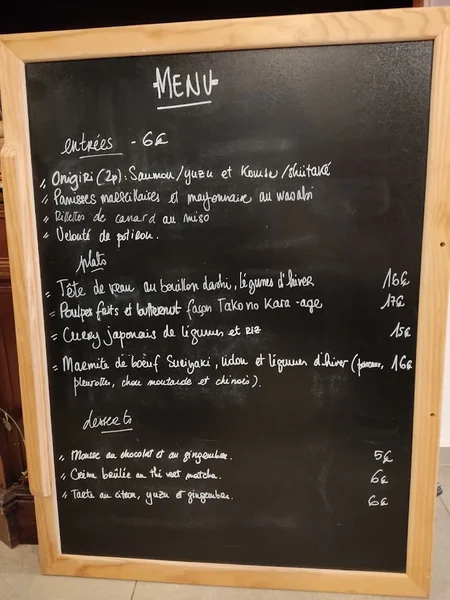 MENU
entrées - 6€
Onigiri (2p) : Saumon/yuzu et Kombu/shiitaké
Panisses marseillaises et mayonnaise au wasabi
Rillettes de canard au miso
Velouté de potiron.
plats
Tête de veau au bouillon dashi, légumes d'hiver 16€
Poulpes frits et butternut façon Tako no Kara-age 17€
Curry japonais de légumes et riz 15€
Marmite de bœuf Sukiyaki, udon et légumes d'hiver (panais, 16€
pleurotes, chou moutarde et chinois).
desserts
Mousse au chocolat et au gingembre. 5€
Crème brûlée au thé vert matcha. 6€
Tarte au citron, yuzu et gingembre. 6€